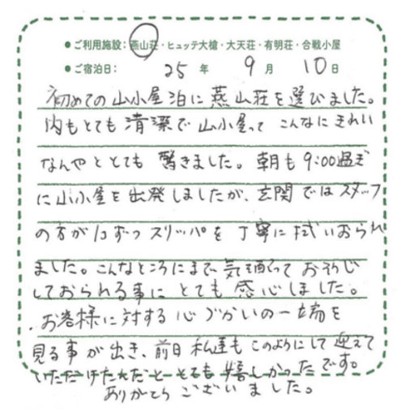 ●ご利用施設：燕山荘・ヒュッテ大槍・大天荘・有明荘・合戦小屋
●ご宿泊日： 25 年 9 月 10 日
初めての山小屋泊に燕山荘を選びました。
内もとても清潔で山小屋って こんなにきれい
なんやととても驚きました。朝も9:00過ぎ
に山小屋を出発しましたが、玄関ではスタッフ
の方が1コずつスリッパを丁寧に拭いおられ
ました。こんなところにまで気を配っておそうじ
しておられる事にとても感心しました。
お客様に対する心づかいの一端を
見る事が出き、前日私達もこのようにして迎えて
いただけたんだととても嬉しかったです。
ありがとうございました。